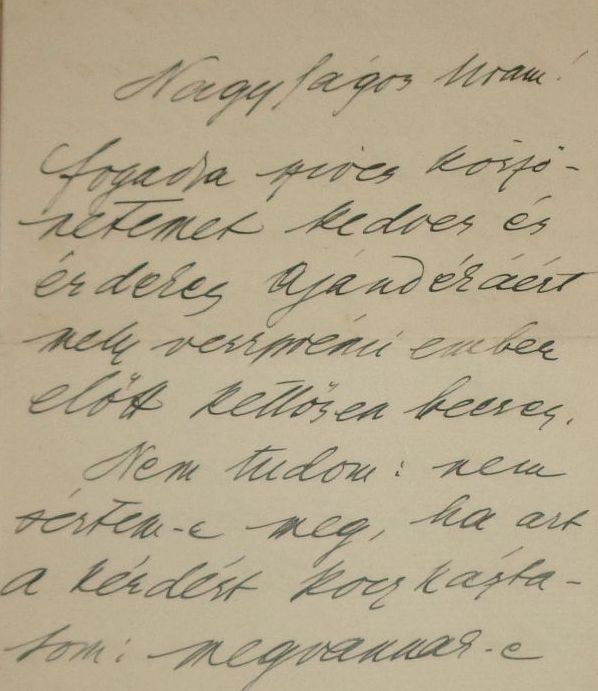 Nagyságos Uram!
fogadja szives köszö-
netemet kedves és
érdekes ajándékáért
mely veszprémi ember
előtt kettősen becses.
Nem tudom: nem
sértem-e meg, ha azt
a kérdést koczkázta-
tom: megvannak-e